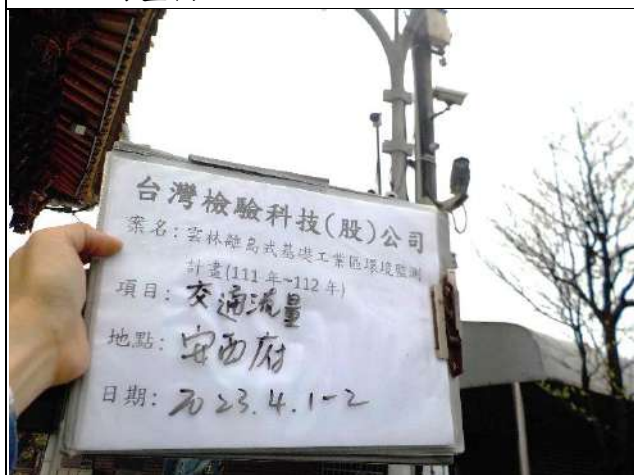 台灣檢驗科技(股)公司
案名:雲林離島式基礎工業區環境監測
計畫(111年~112年)
項目:交通流量
地點:安西府
日期:2023.4.1-2